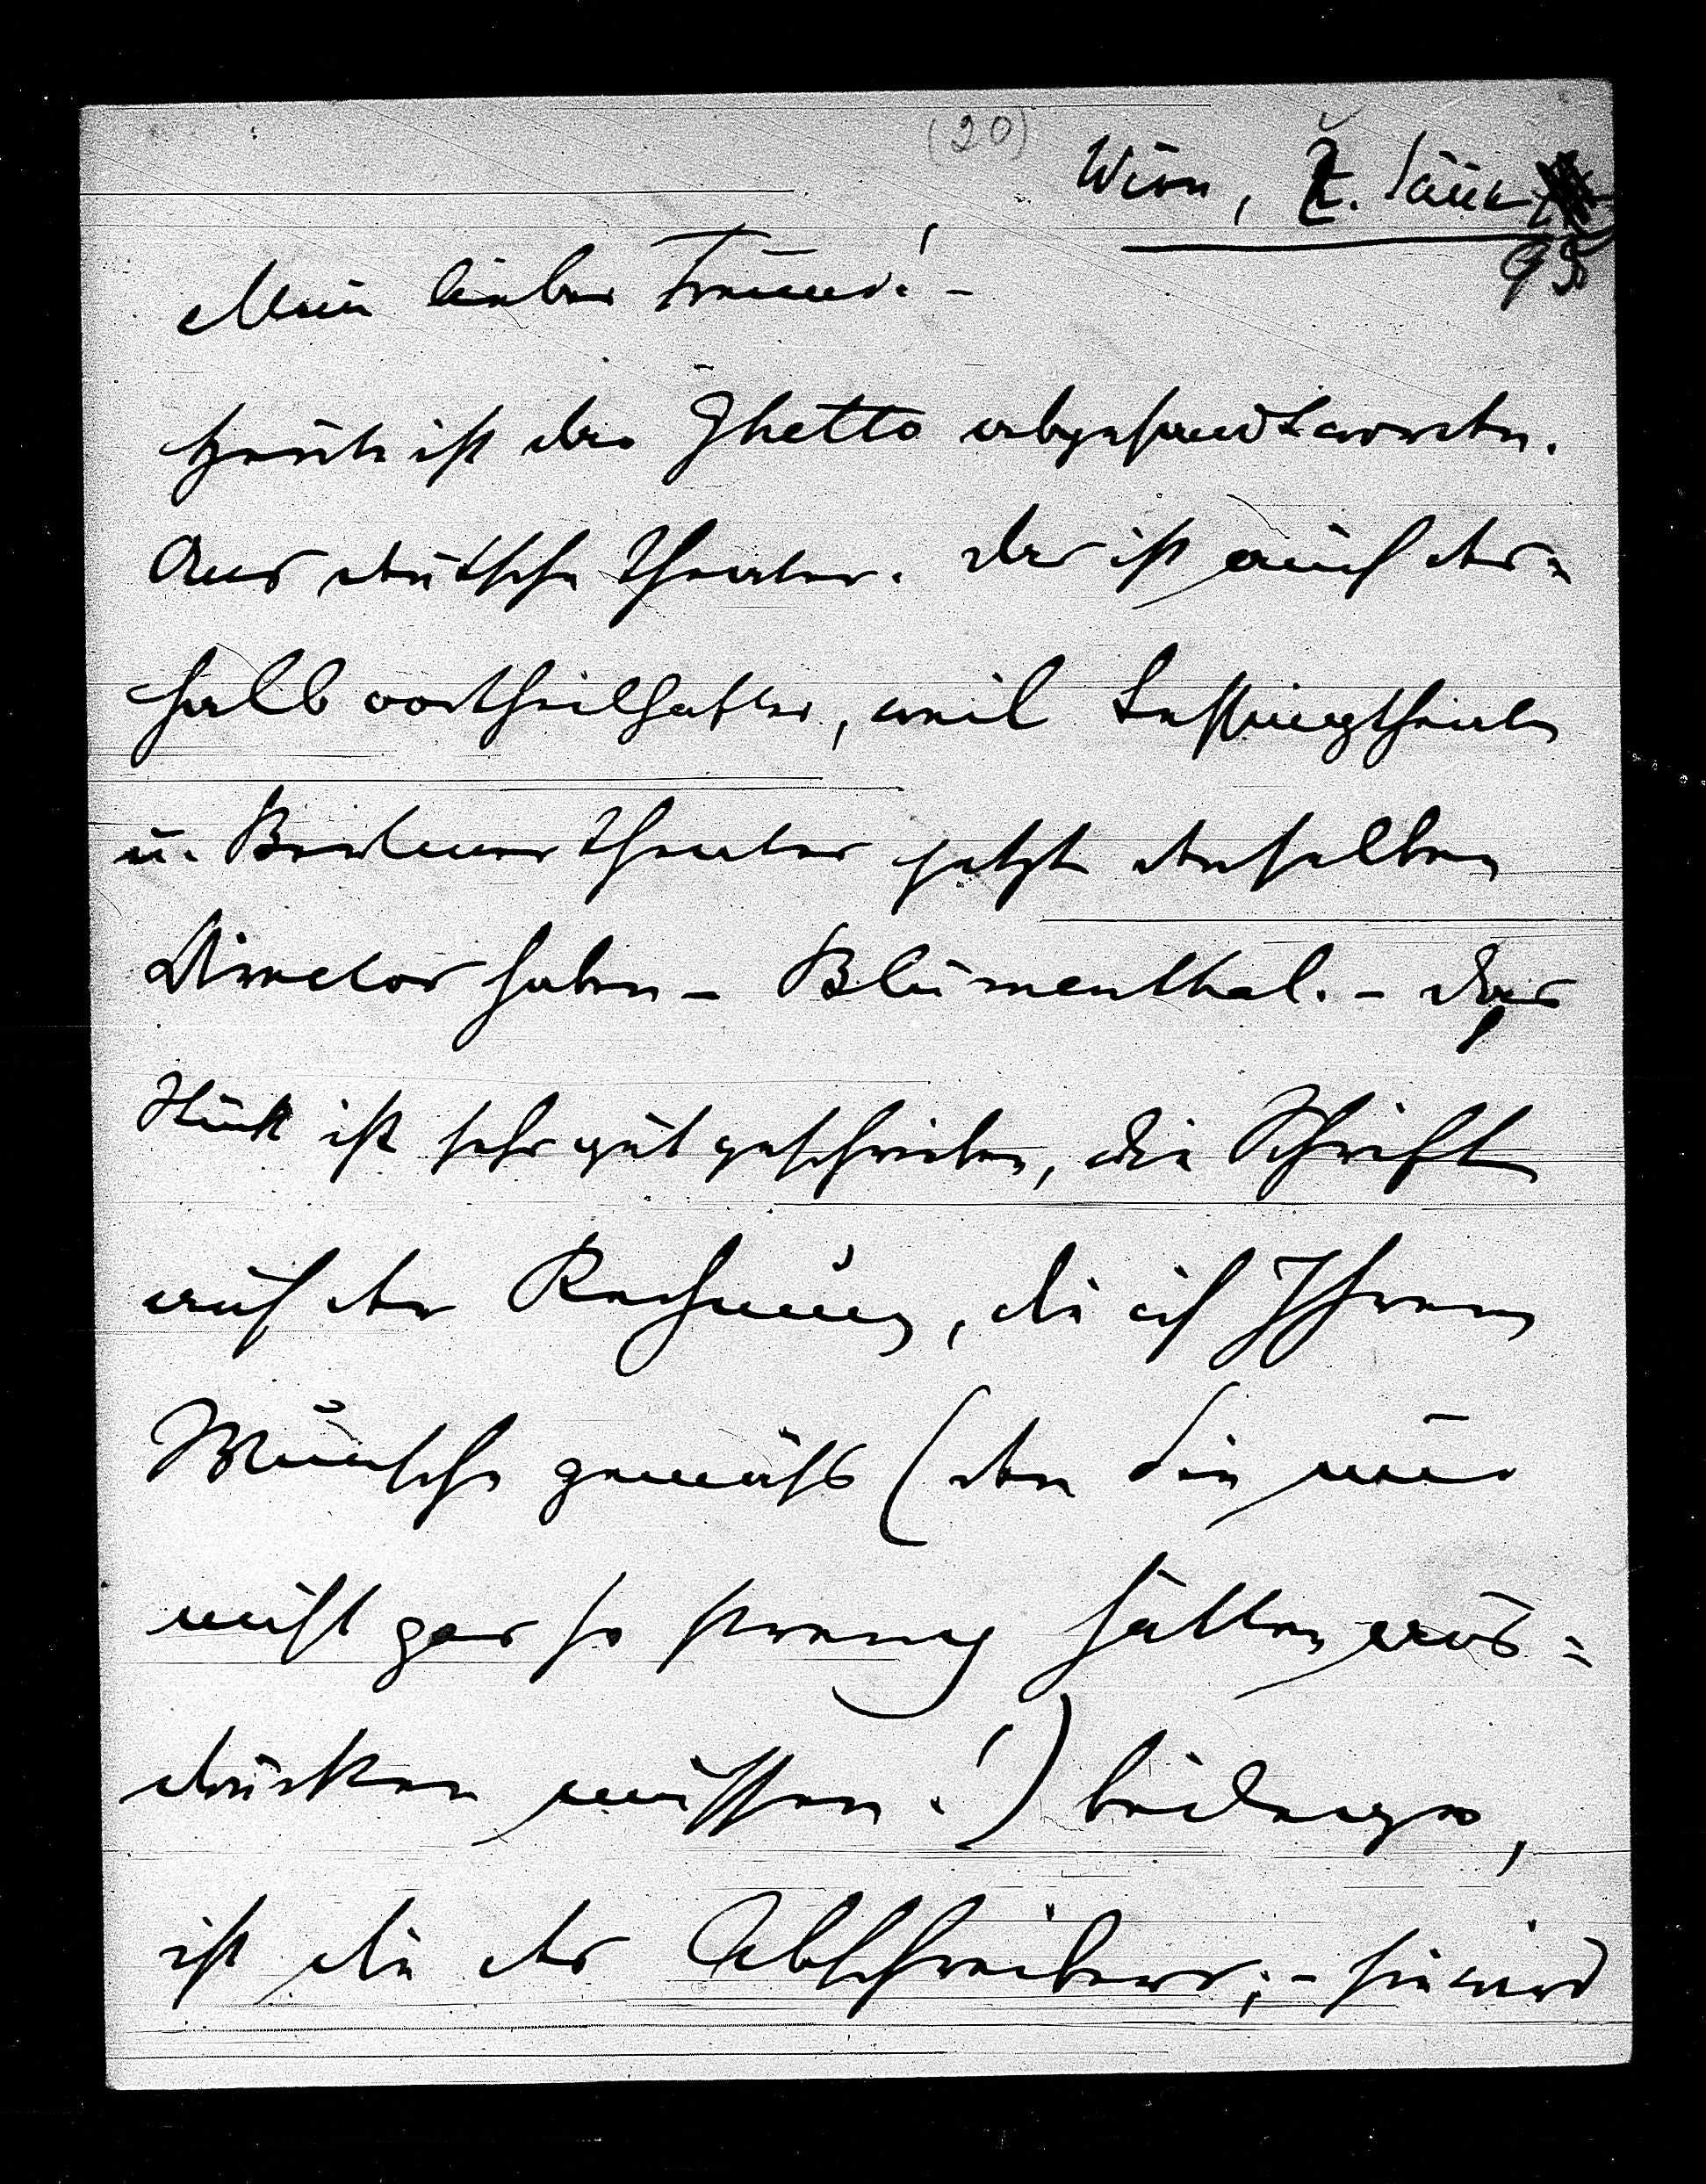 (20)
Wien, 2. Jänn
95
Mein lieber Freund! –
heute ist das Ghetto abgesandt worden.
Ans deutsche Theater. Das ist auch des=
halb vortheilhafter, weil Lessingtheater
u. Berliner Theater jetzt denselben
Director haben – Blumenthal. – Das
Stück ist sehr gut geschrieben, die Schrift
auf der Rechnung, die ich Ihrem
Wunsche gemäß (den Sie nur
nicht gar so streng hätten aus=
drücken müssen!) beilege,
ist die des Abschreibers; – sie wird